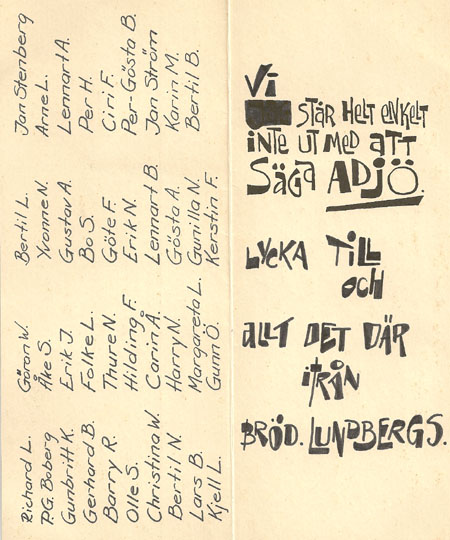 Richard L.
P.G. Boberg
Gunbritt K.
Gerhard B.
Barry R.
Olle S.
Christina W.
Bertil N.
Lars B.
Kjell L.
Göran W.
Åke S.
Erik J.
Folke L.
Thure N.
Hilding F.
Carin Å.
Harry N.
Margareta L.
Gunn Ö.
Bertil L.
Yvonne N.
Gustav A.
Bo S.
Göte F.
Erik N.
Lennart B.
Gösta A.
Gunilla N.
Kerstin F.
Jan Stenberg
Arne L.
Lennart A.
Per H.
Ciri F.
Per-Gösta B.
Jan Ström
Karin M.
Bertil B.
Vi
STÅR HELT ENKELT
INTE UT MED ATT
SÄGA ADJÖ.
LYCKA TILL
OCH
ALLT DET DÄR
IFRÅN
BRÖD. LUNDBERGS.